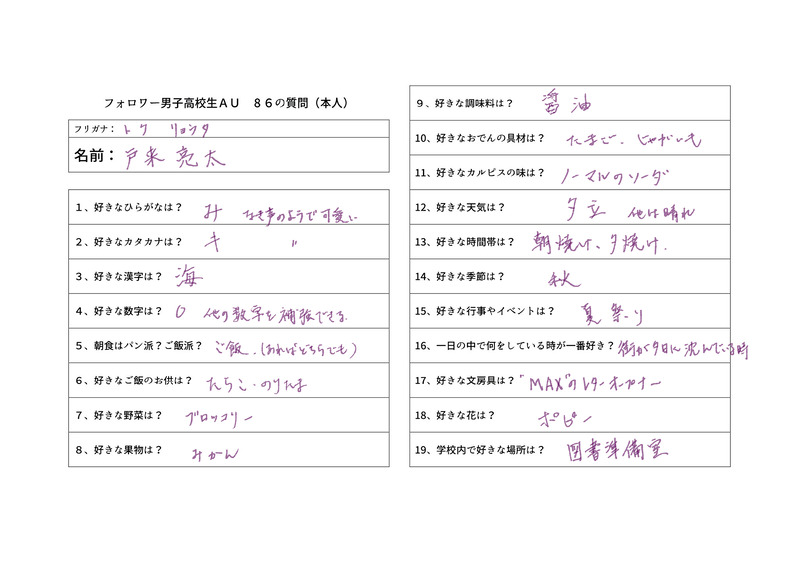 フォロワー男子高校生ＡＵ　８６の質問（本人）
フリガナ： トク リョウタ
名前： 戸来 亮太
１、好きなひらがなは？ み なき声のようで可愛い
２、好きなカタカナは？ キ 〃
３、好きな漢字は？ 海
４、好きな数字は？ 0 他の数字を補強できる.
５、朝食はパン派？ご飯派？ ご飯.(あればどちらでも)
６、好きなご飯のお供は？ たらこ・のりたま
７、好きな野菜は？ ブロッコリー
８、好きな果物は？ みかん
９、好きな調味料は？ 醤油
10、好きなおでんの具材は？ たまご. じゃがいも
11、好きなカルピスの味は？ ノーマルのソーダ
12、好きな天気は？ 夕立 他は晴れ
13、好きな時間帯は？ 朝焼け、夕焼け.
14、好きな季節は？ 秋
15、好きな行事やイベントは？ 夏祭り
16、一日の中で何をしている時が一番好き？ 街が夕日に沈んでいる時
17、好きな文房具は？ "MAX"のレターオープナー
18、好きな花は？ ポピー
19、学校内で好きな場所は？ 図書準備室